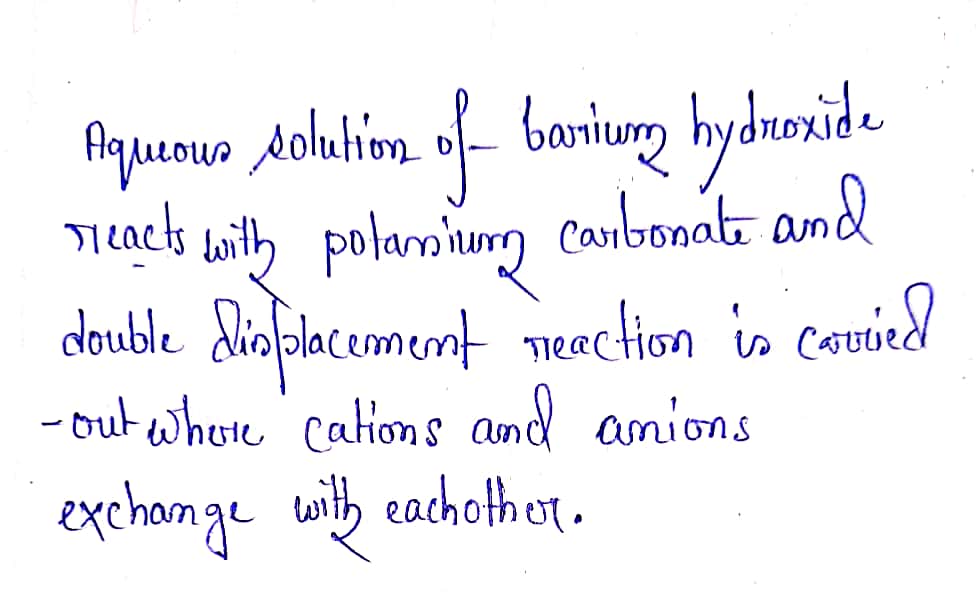 Aqueous solution of barium hydroxide
reacts with potassium carbonate and
double displacement reaction is carried
-out where cations and anions
exchange with eachother.